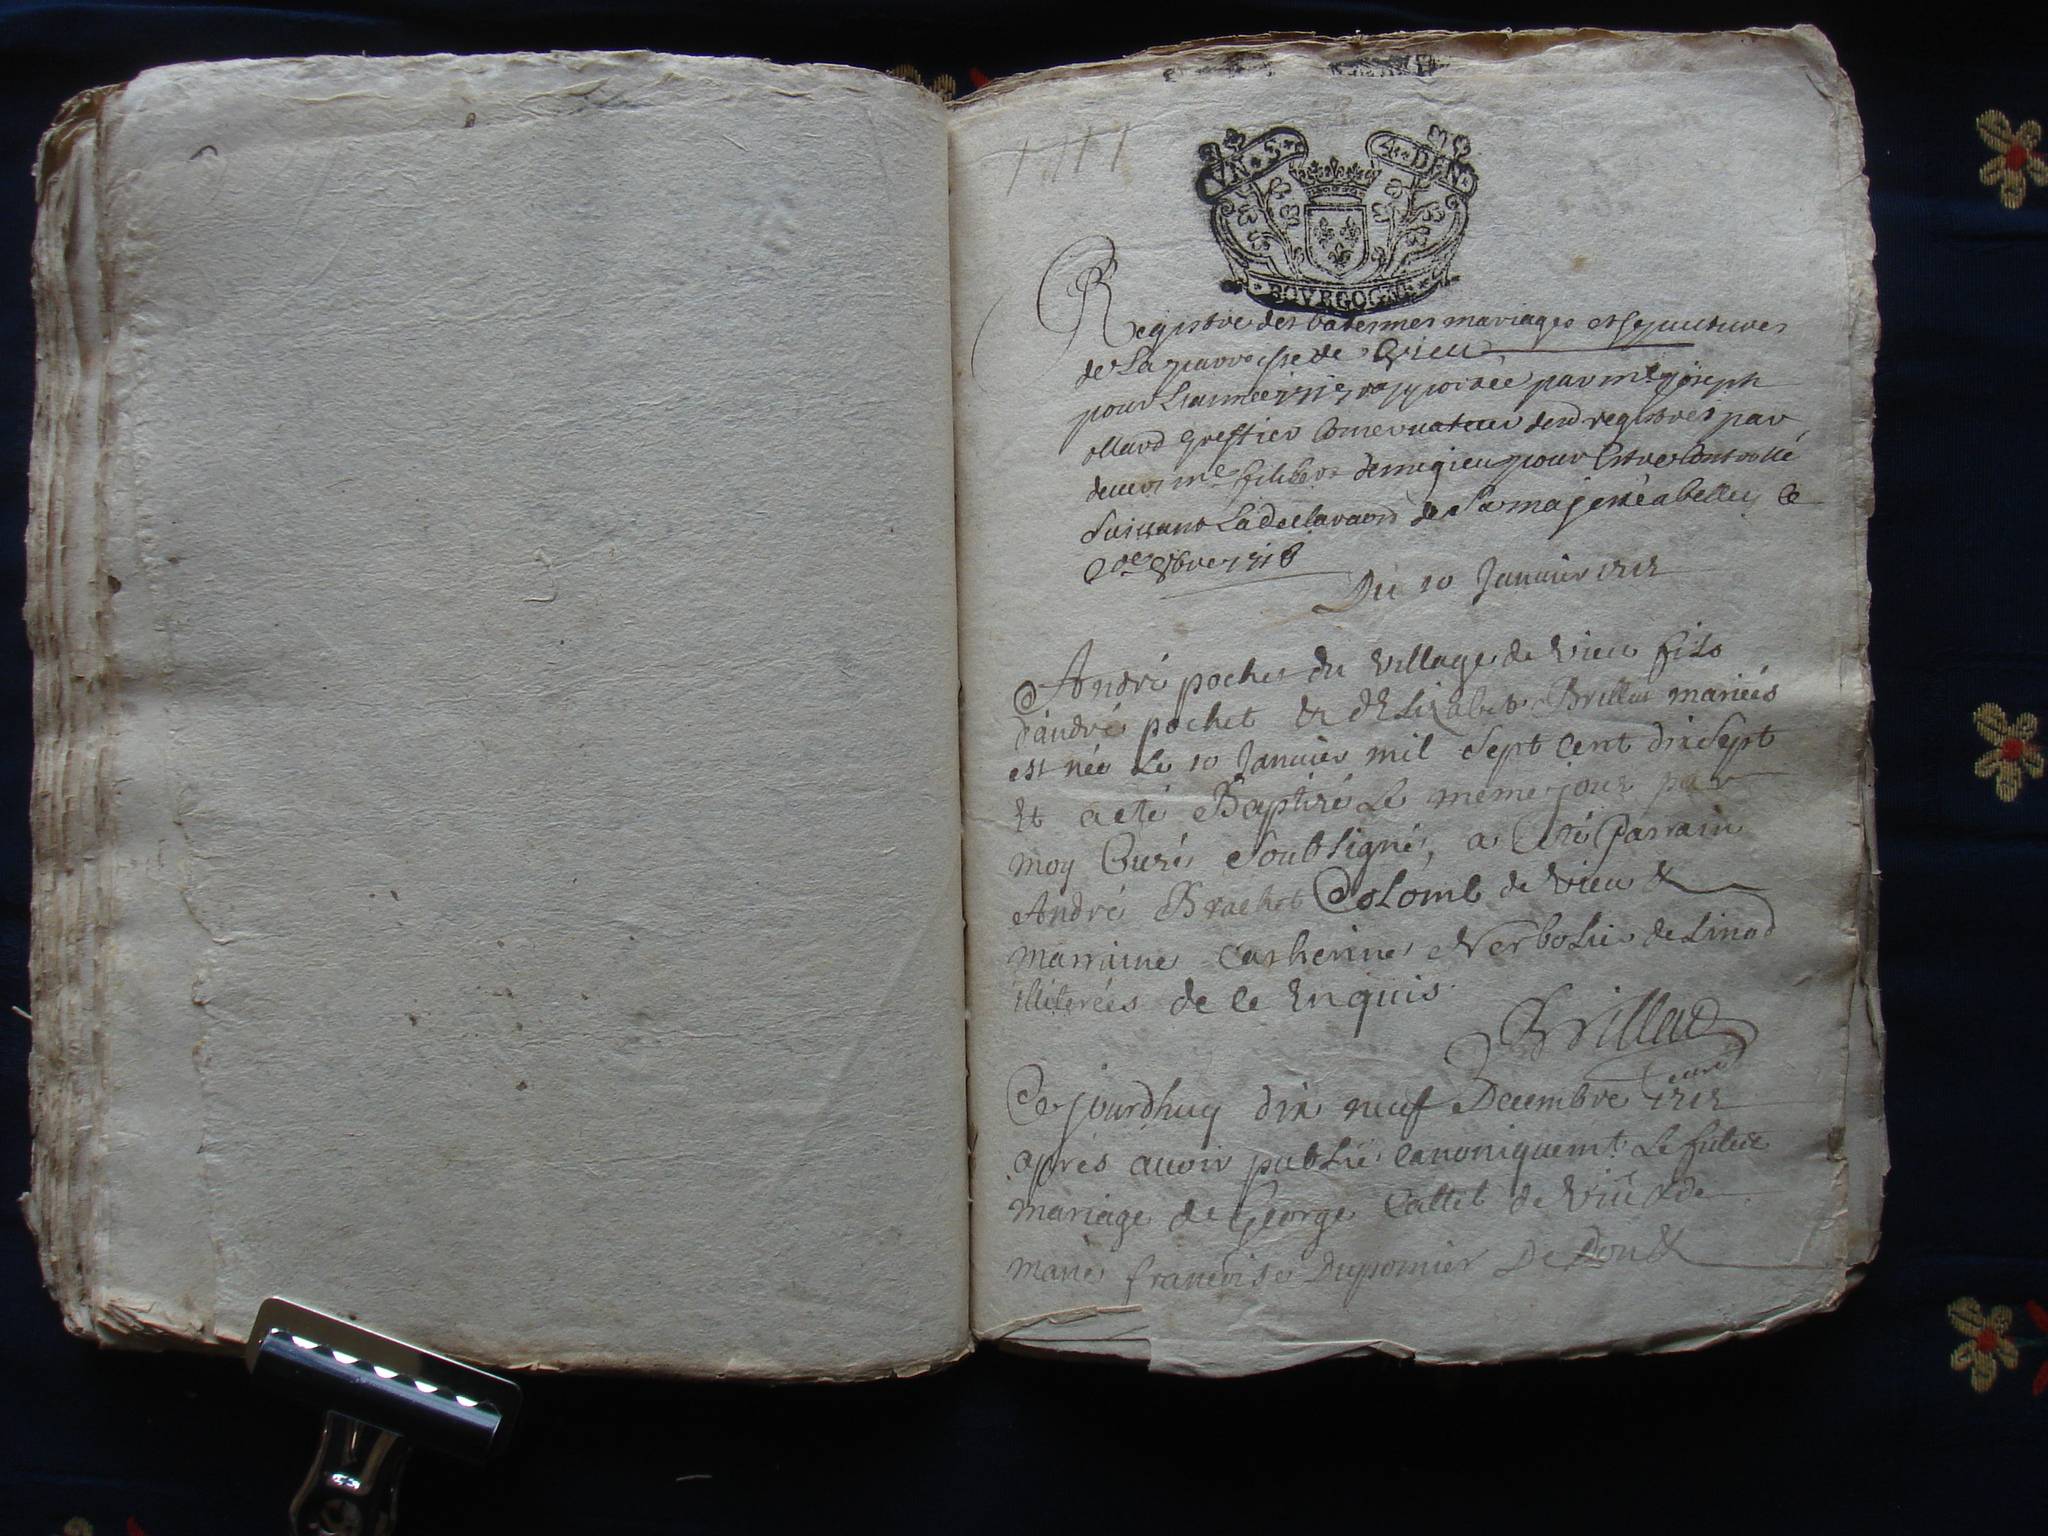 1717
VN·S· 4·DEN·
BOVRGOGNE
Registre des batesmes mariages et sepultures
de La parroisse de Vieu
pour Lannee 1717 rapportée par mE joseph
ollard greffier Conservateur desd registres par
devers me filibert demigieu pour Estre Controllé
suivant La declaraon de Sa majesté a belley Ce
2de xbre 1718
Du 10 Janvier 1717
André pochet du village de vieu fils
d'andré pochet & d'Elizabet Brillat mariés
est née Le 10 Janvier mil sept cent dix sept
Et a eté Baptizé Le meme jour par
moy Curé soubsigné, a Eté Parrain
André Brachet Colomb de vieu &
marraine Catherine de Linod
illiterées de ce Enquis
Brillat
curé
Ce jourdhuy dix neuf Decembre 1717
aprés avoir publié canoniquemt Le futur
mariage de George Callet de vieu & de
marie francoise Duponnier De Don &